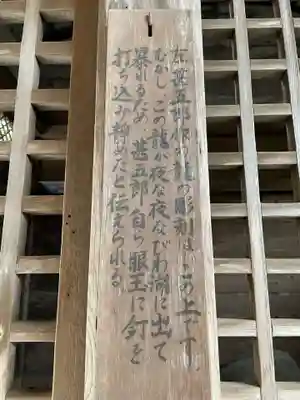 左甚五郎作の龍の彫刻は、この上です。
むかし、この龍が夜な夜なびわ湖に出て
暴れるため、甚五郎自ら眼玉に釘を
打ち込み静めたと伝えられる。